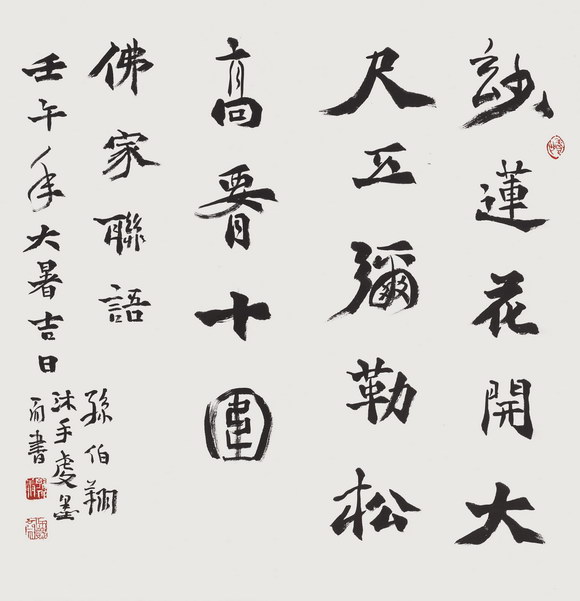 玅蓮花開大
尺五彌勒松
高腰十圍
佛家聯語
壬午年大暑吉日
孫伯翔
沐手虔墨
而書